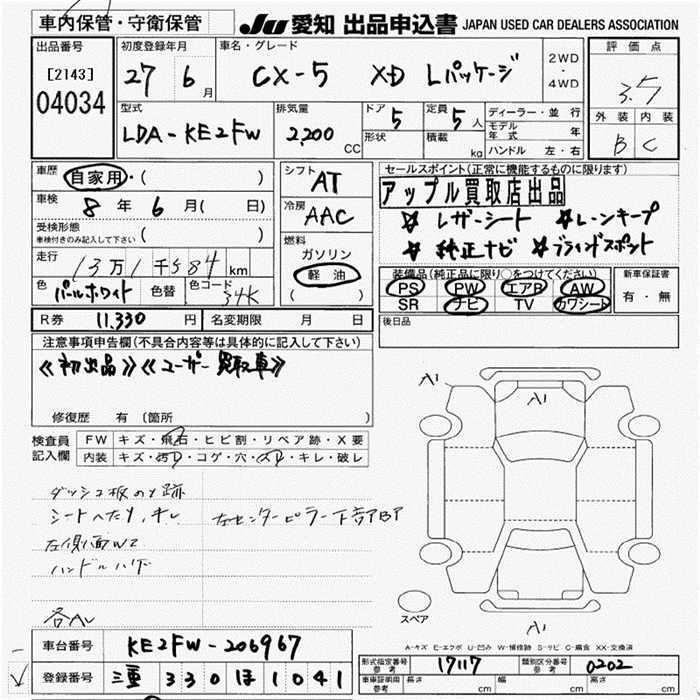 車内保管・守衛保管
JU 愛知 出品申込書 JAPAN USED CAR DEALERS ASSOCIATION
出品番号
[2143]
04034
初度登録年月
27 6月
車名・グレード
CX-5 XD Lパッケージ
2WD
・
4WD
評価点
3.5
外装 内装
B C
型式
LDA-KE2FW
排気量
2,200 CC
ドア 5
形状
定員 5人
積載 kg
ディーラー・並行
モデル年式 年
ハンドル 左・右
車歴
自家用・( )
車検
8年 6月( 日)
受検形態
車検付きのみ記入して下さい ( )
走行
13万1千584km
色 パールホワイト 色替 色コード 34K
シフト AT
冷房 AAC
燃料
ガソリン
軽油
( )
セールスポイント(正常に機能するものに限ります)
アップル買取店出品
☆レザーシート ☆レーンキープ
☆純正ナビ ☆ブラインドスポット
装備品(純正品に限り○をつけてください)
PS PW エアB AW
SR ナビ TV カワシート
新車保証書
有・無
R券 11,330円 名変期限 月 日
後日品
注意事項申告欄(不具合内容等は具体的に記入して下さい)
≪初出品≫≪ユーザー買取車≫
修復歴 有 (箇所 )
検査員記入欄
FW キズ・飛石・ヒビ割・リペア跡・X要
内装 キズ・汚レ・コゲ・穴・スレ・キレ・破レ
ダッシュ板のり跡
シートヘたり,キレ 左センターピラー下部BP
左側面W2
ハンドルハゲ
各AU
A1
A1
A1
スペア
A-キズ E-エクボ U-凹み W-補修跡 S-サビ C-腐食 XX-交換済
車台番号 KE2FW-206967
登録番号 三重 330 ほ 1041
型式指定番号 参考 17117 類別区分番号 参考 0202
車庫証明用 参考 長さ cm 幅 cm 高さ cm